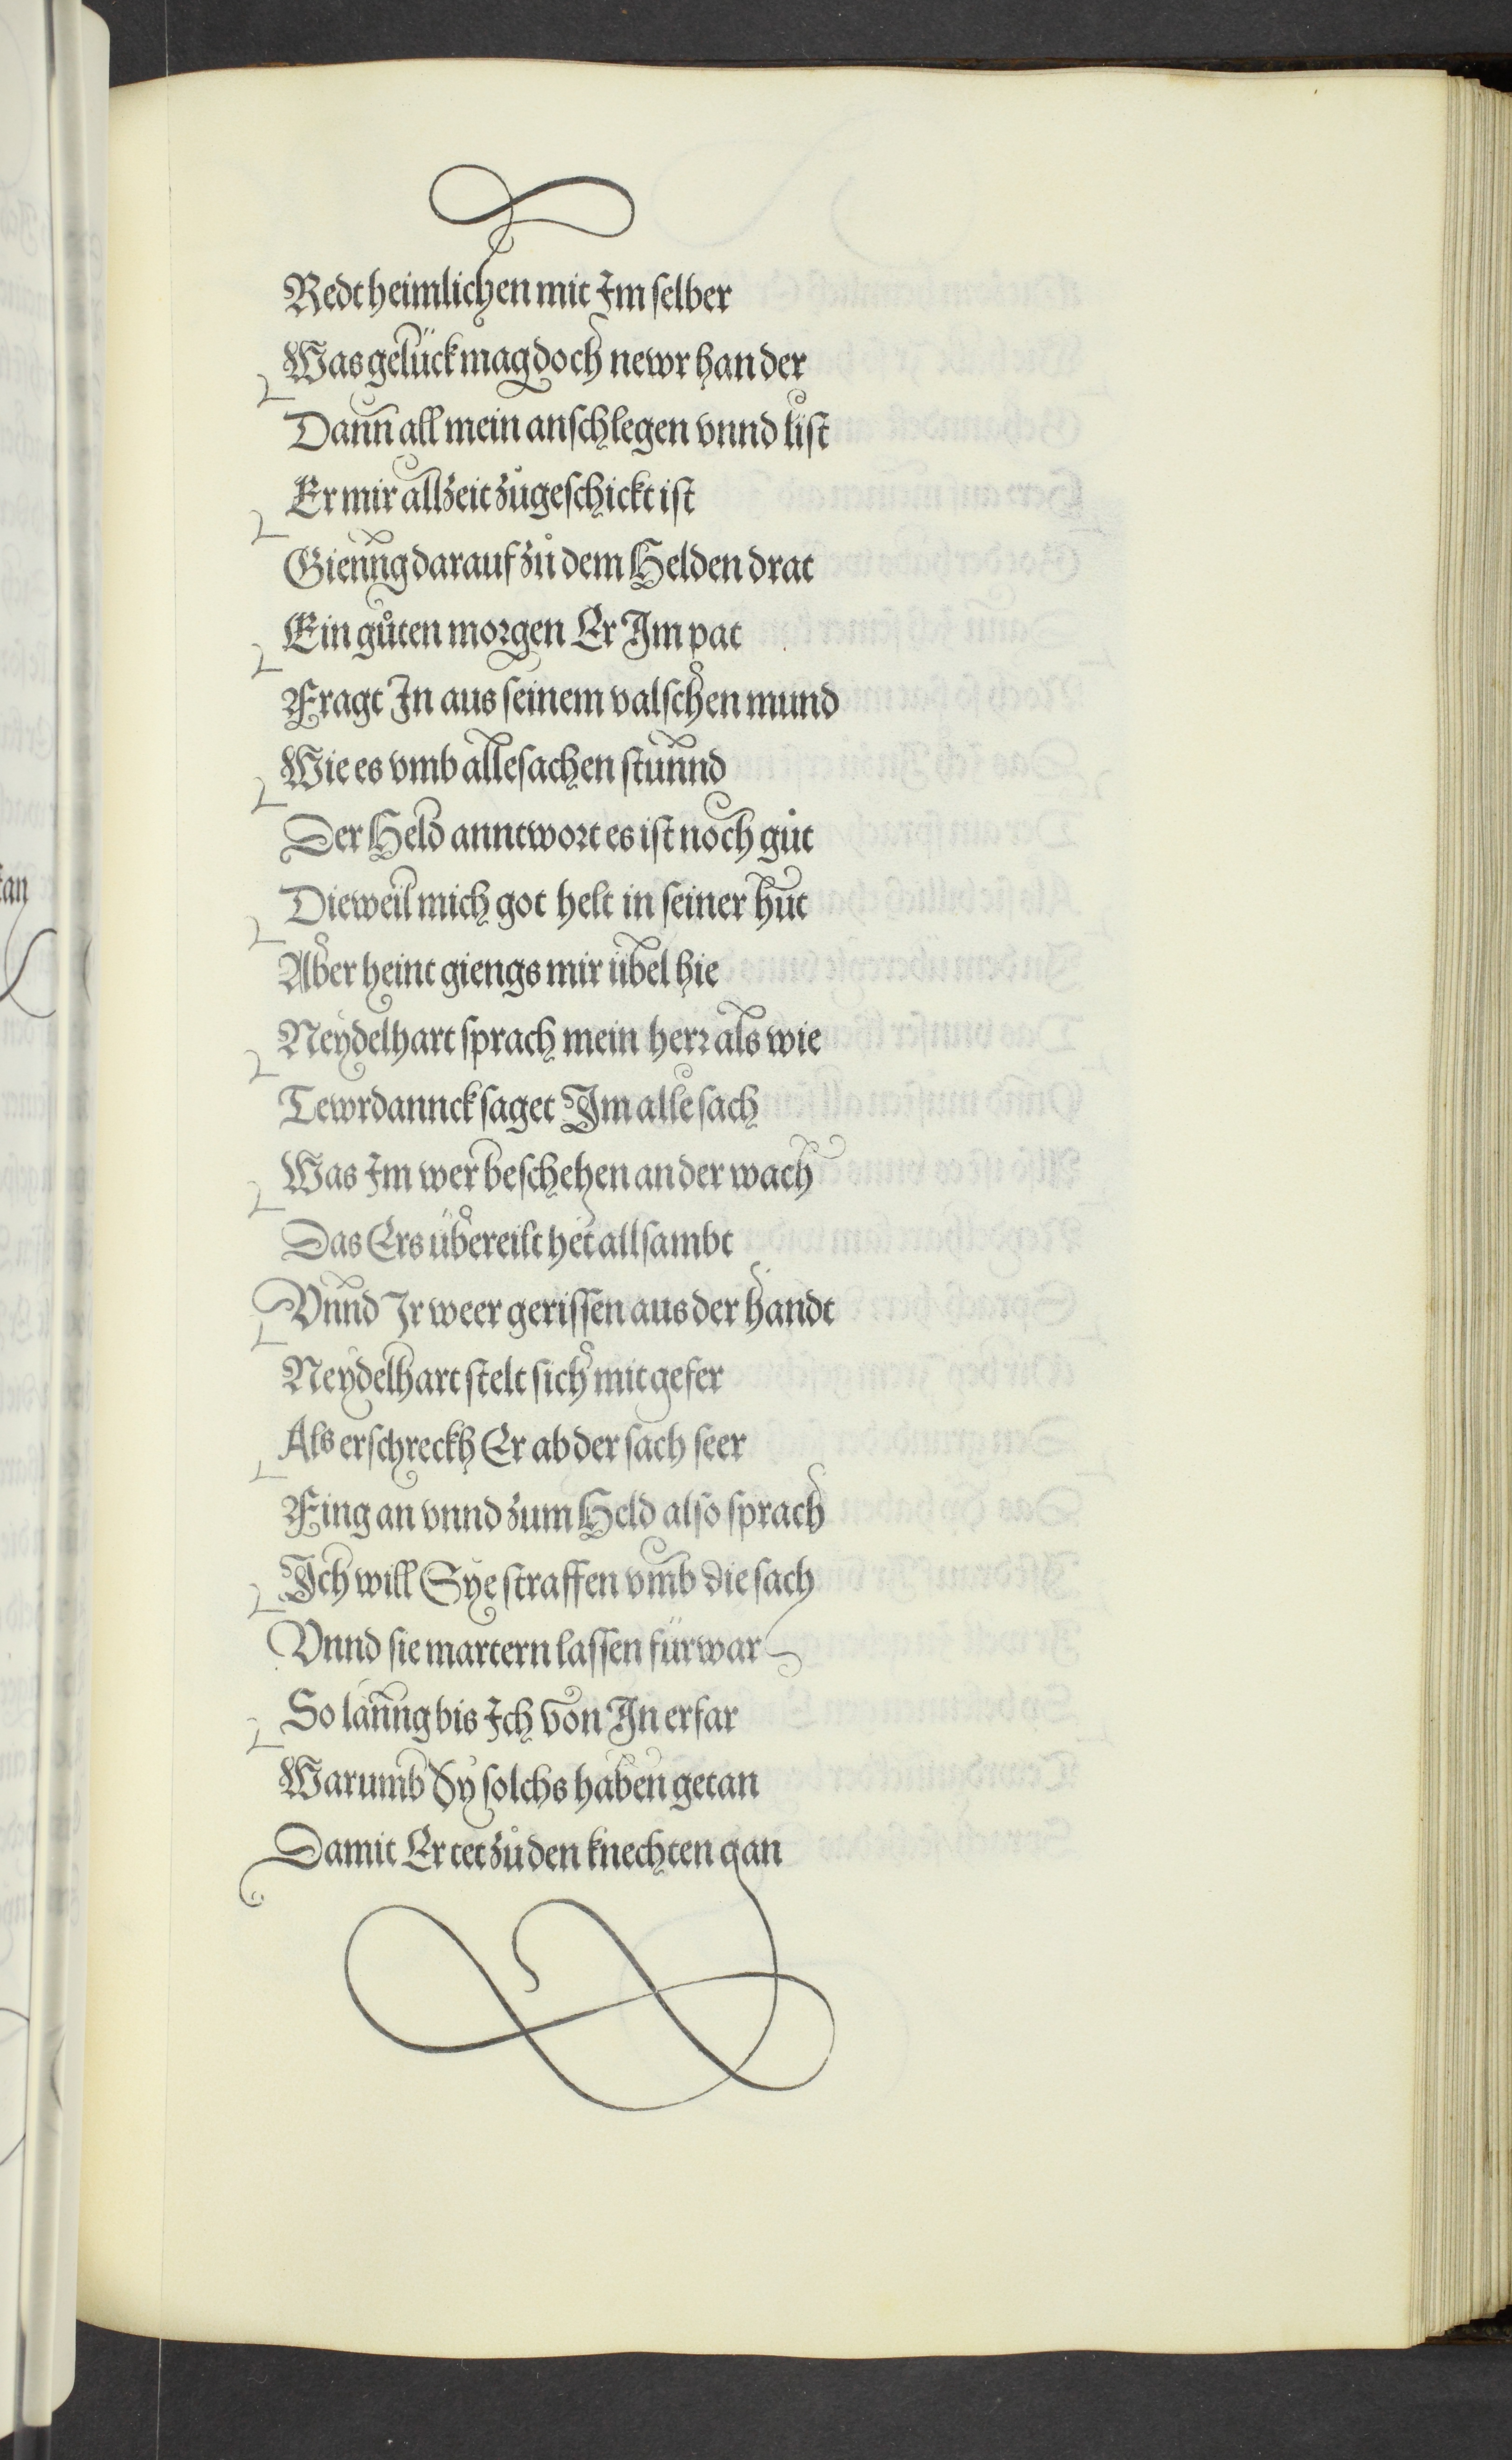 Redt heimlichen mit Im selber
Was gelück mag doch newr han der
Dann all mein anschlegen vnnd list
Er mir allzeit zůgeschickt ist
Gienng darauf zů dem Helden drat
Ein gůten morgen Er Im pat
Fragt In aus seinem valschen mund
Wie es vmb alle sachen stunnd
Der Held anntwort es ist noch gůt
Dieweil mich got helt in seiner hůt
Aber heint giengs mir übel hie
Neydelhart sprach mein herr als wie
Tewrdannck saget Im alle sach
Was Im wer beschehen an der wach
Das Ers übereilt het allsambt
Vnnd Ir weer gerissen aus der handt
Neydelhart stelt sich mit gefer
Als erschreckh Er ab der sach seer
Fing an vnnd zum Held also sprach
Ich will Sye straffen vmb die sach
Vnnd sie martern lassen fürwar
So lanng bis Ich von In erfar
Warumb Sy solchs haben getan
Damit Er tet zů den knechten gan